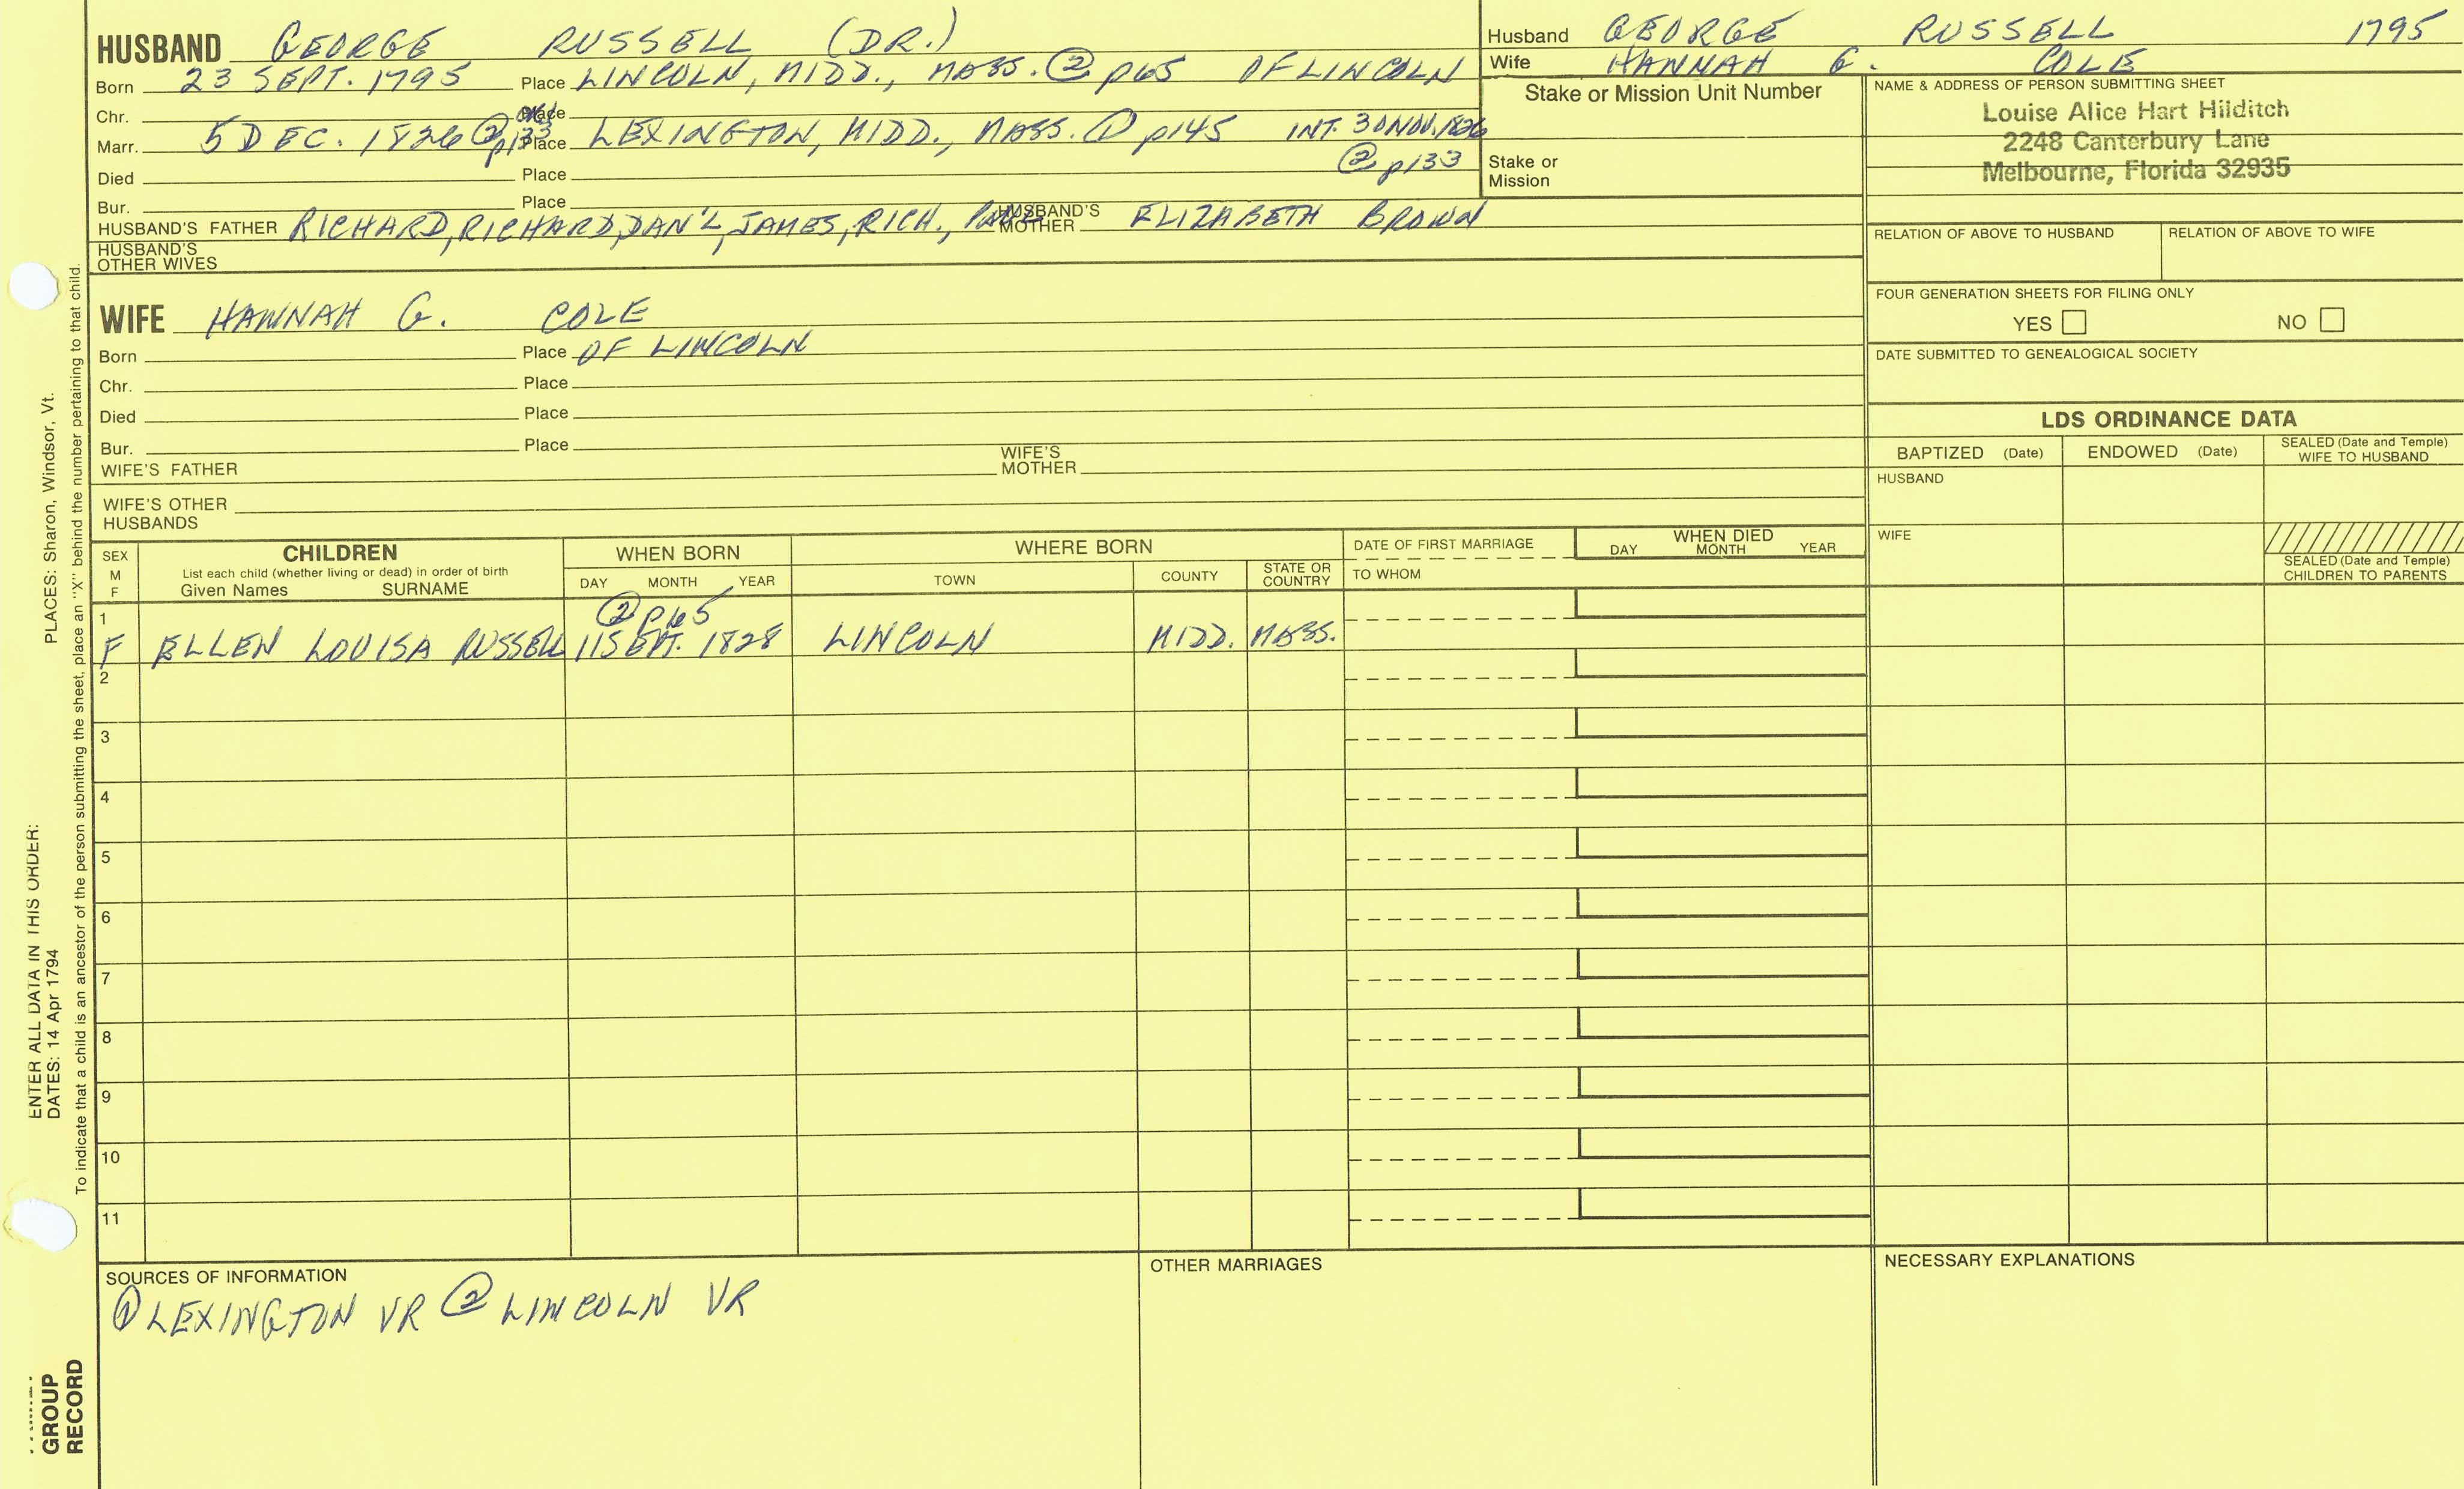 HUSBAND GEORGE RUSSELL (DR.)
Born 23 SEPT. 1795 Place LINCOLN, MIDD., MASS. ② p65 OF LINCOLN
Chr. Place
Marr. 5 DEC. 1826 ② p133 Place LEXINGTON, MIDD., MASS. ① p145 INT. 30 NOV. 1826
② p133
Died Place
Bur. Place
HUSBAND'S FATHER RICHARD, RICHARD, DAN'L, JAMES, RICH., HUSBAND'S MOTHER ELIZABETH BROWN
HUSBAND'S OTHER WIVES
WIFE HANNAH G. COLE
Born Place OF LINCOLN
Chr. Place
Died Place
Bur. Place
WIFE'S FATHER WIFE'S MOTHER
WIFE'S OTHER HUSBANDS
Husband GEORGE RUSSELL 1795
Wife HANNAH G. COLE
Stake or Mission Unit Number
Stake or Mission
NAME & ADDRESS OF PERSON SUBMITTING SHEET
Louise Alice Hart Hilditch
2248 Canterbury Lane
Melbourne, Florida 32935
RELATION OF ABOVE TO HUSBAND RELATION OF ABOVE TO WIFE
FOUR GENERATION SHEETS FOR FILING ONLY
YES NO
DATE SUBMITTED TO GENEALOGICAL SOCIETY
LDS ORDINANCE DATA
BAPTIZED (Date) ENDOWED (Date) SEALED (Date and Temple) WIFE TO HUSBAND
HUSBAND
WIFE
SEALED (Date and Temple) CHILDREN TO PARENTS
SEX M F
CHILDREN
List each child (whether living or dead) in order of birth
Given Names SURNAME
WHEN BORN
DAY MONTH YEAR
WHERE BORN
TOWN COUNTY STATE OR COUNTRY
DATE OF FIRST MARRIAGE
TO WHOM
WHEN DIED
DAY MONTH YEAR
1 ② p65
F ELLEN LOUISA RUSSELL 11 SEPT. 1828 LINCOLN MIDD. MASS.
2
3
4
5
6
7
8
9
10
11
SOURCES OF INFORMATION
① LEXINGTON VR ② LINCOLN VR
OTHER MARRIAGES
NECESSARY EXPLANATIONS
GROUP
RECORD
ENTER ALL DATA IN THIS ORDER:
DATES: 14 Apr 1794 PLACES: Sharon, Windsor, Vt.
To indicate that a child is an ancestor of the person submitting the sheet, place an "X" behind the number pertaining to that child.